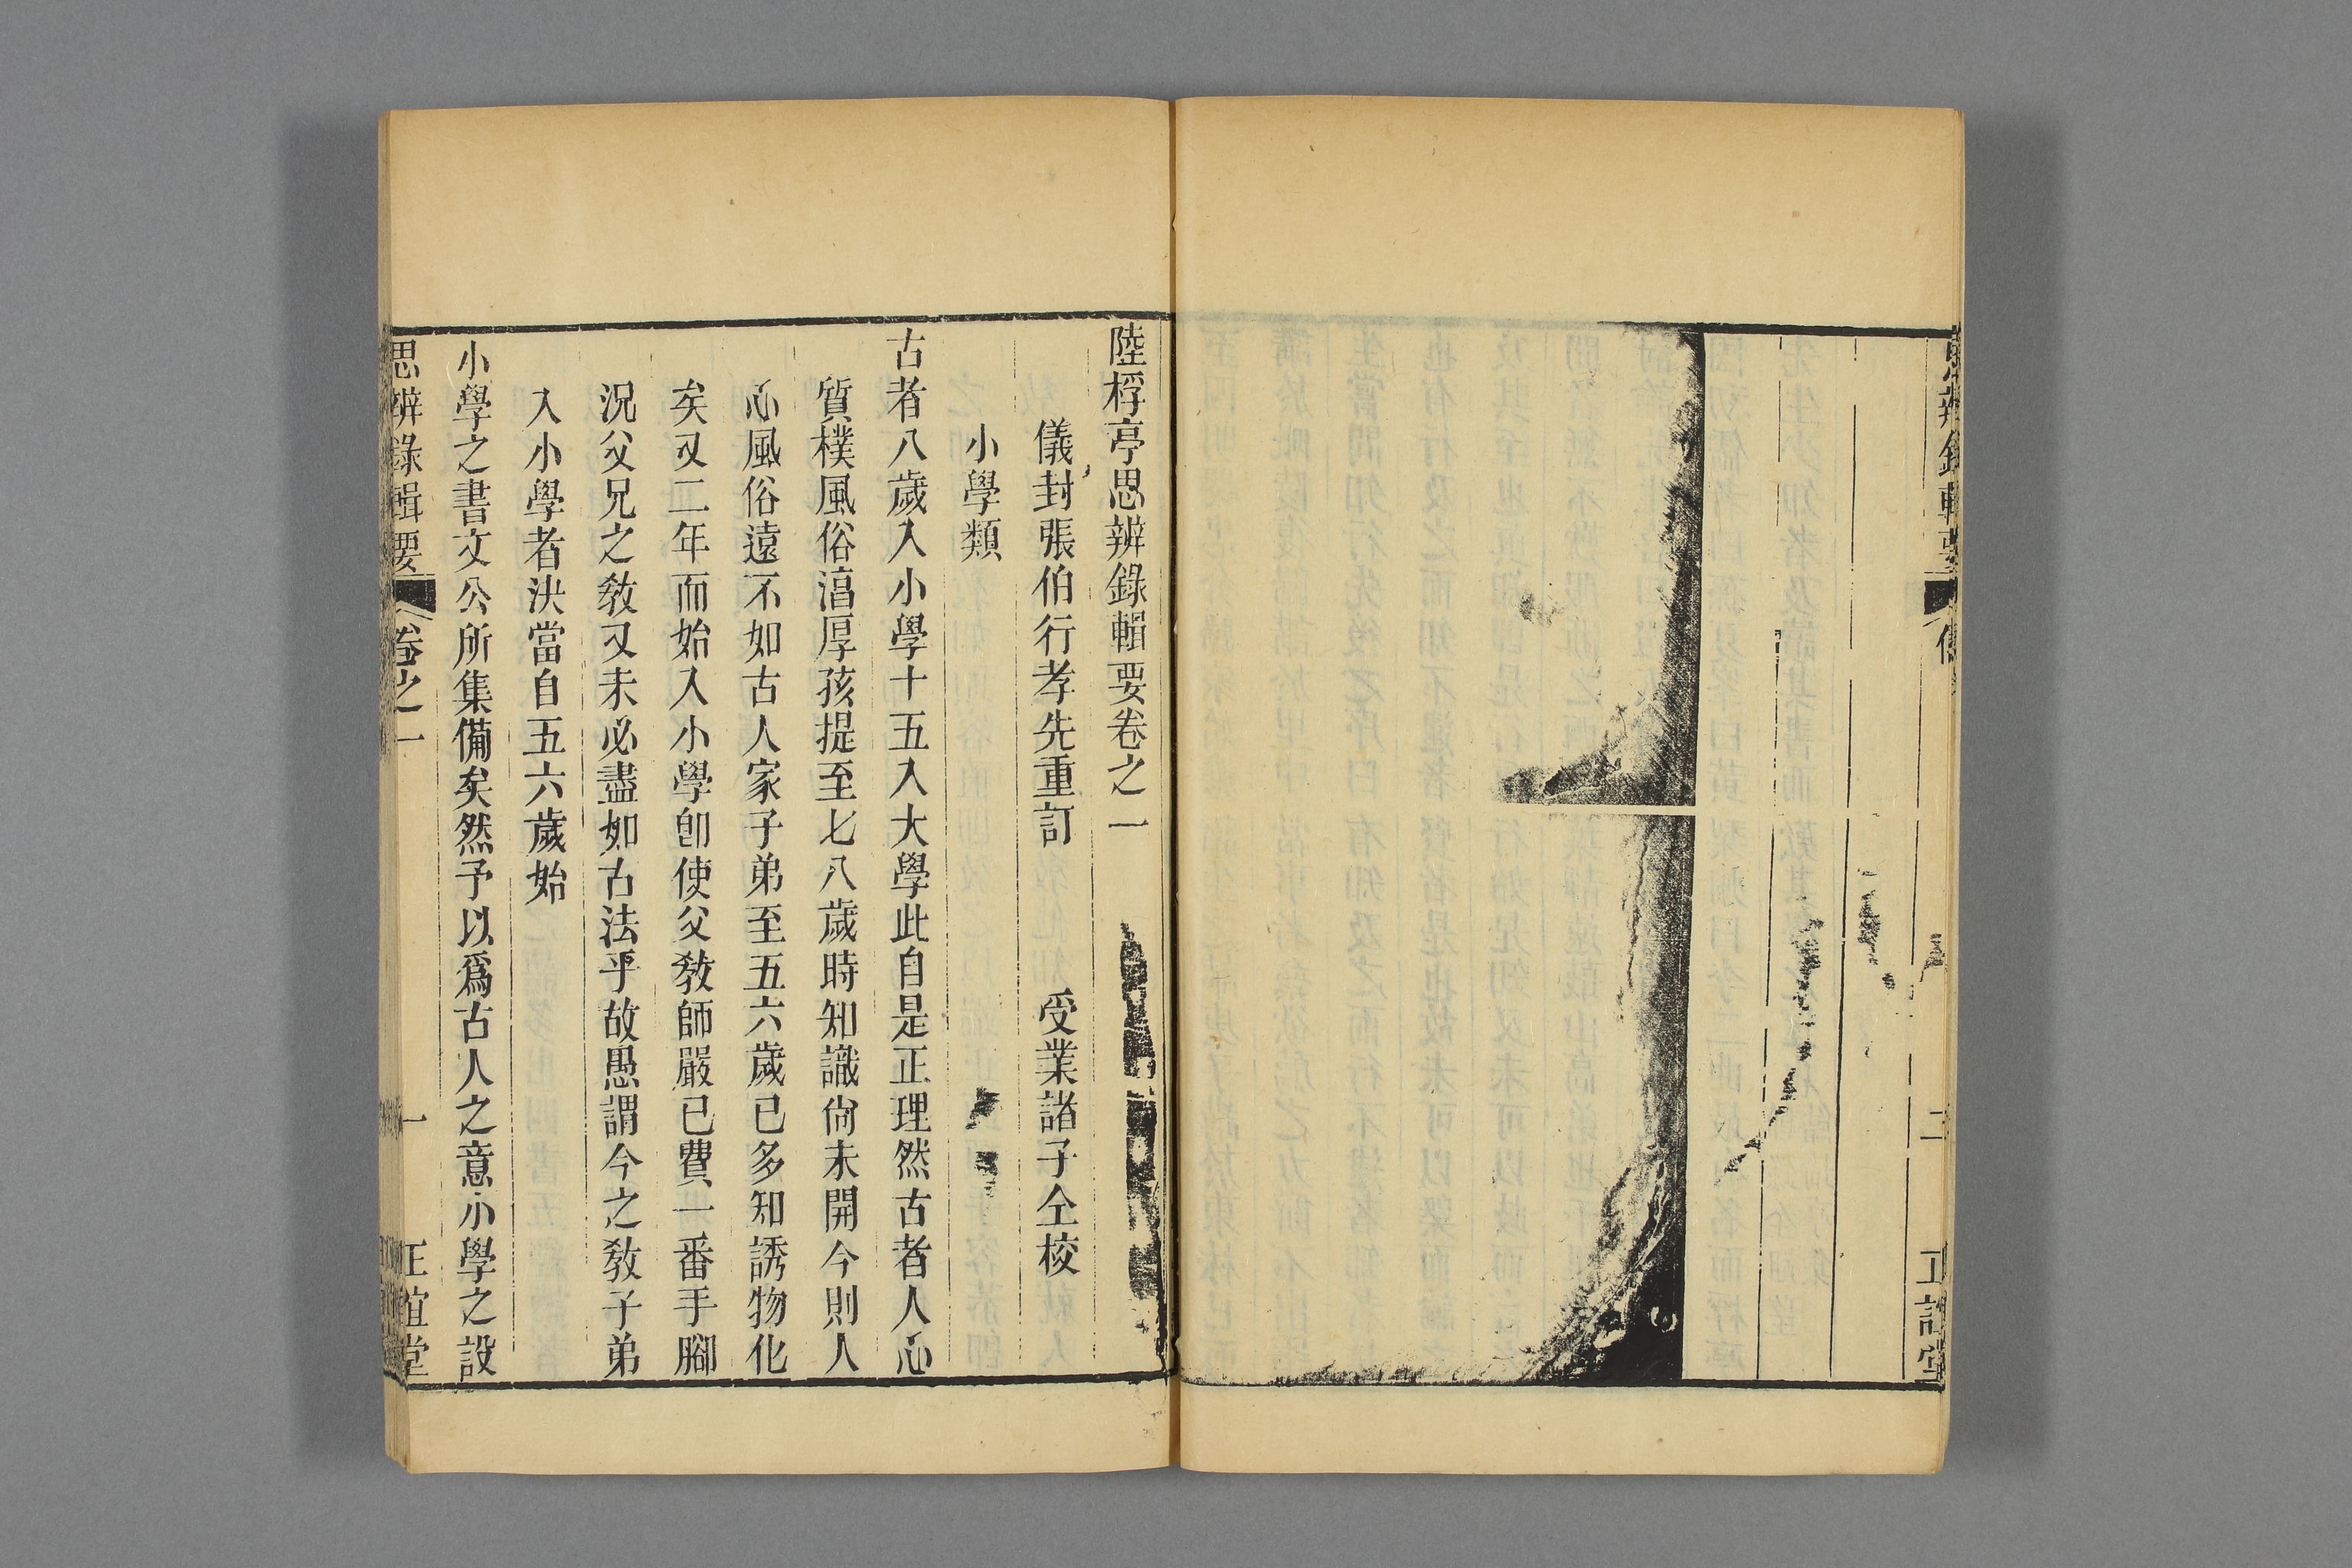 陸桴亭思辨錄輯要卷之一
儀封張伯行孝先重訂　受業諸子仝校
小學類
古者八歲入小學十五入大學此自是正理然古者人心
質樸風俗湻厚孩提至七八歲時知識尙未開今則人
心風俗遠不如古人家子弟至五六歲已多知誘物化
矣又二年而始入小學卽使父敎師嚴已費一番手腳
況父兄之敎又未必盡如古法乎故愚謂今之敎子弟
入小學者決當自五六歲始
小學之書文公所集備矣然予以爲古人之意小學之設
思辨錄輯要　卷之一　一　正誼堂